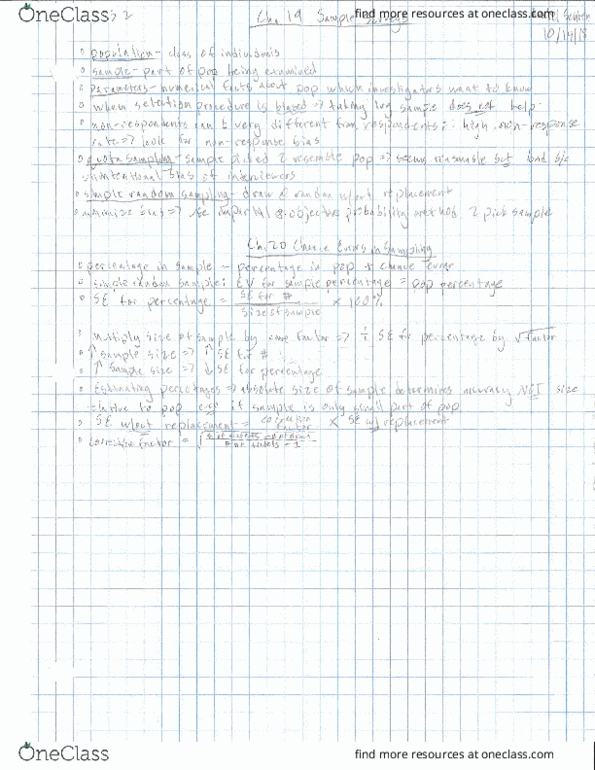 OneClass
find more resources at oneclass.com
2
Ch. 19 Sample
10/14/18
population - class of individuals
sample - part of pop being examined
parameters - numerical facts about pop which investigators want to know
when selection procedure is biased => taking lrg sample does not help
non-respondents can b very different from respondents: high non-response
rate => look for non-response bias
quota sampling - sample picked 2 resemble pop => seems reasonable but bad b/c
unintentional bias of interviewers
simple random sampling - draw @ random w/out replacement
minimize bias => use impartial & objective probability method 2 pick sample
Ch. 20 Chance Errors in Sampling
percentage in sample = percentage in pop + chance error
simple random sample: EV for sample percentage = pop percentage
SE for percentage = SE for # / size of sample × 100%
multiply size of sample by some factor => ÷ SE for percentage by √factor
↑ sample size => ↑ SE for #
↑ sample size => ↓ SE for percentage
estimating percentages => absolute size of sample determines accuracy NOT size
relative to pop even if sample is only small part of pop
SE w/out replacement = correction factor × SE w/ replacement
correction factor = √
OneClass
find more resources at oneclass.com